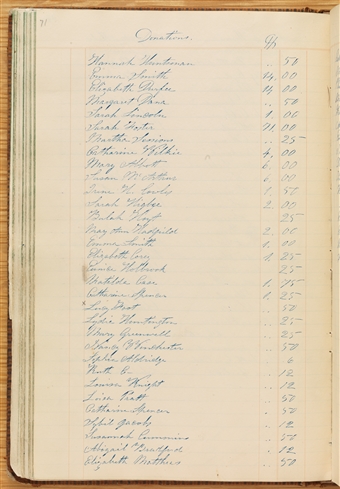 71
Donations.
Hannah Huntsman .. 50
Emma Smith 4,00
Elizabeth Durfee 4,00
Margaret .. 50
Sarah 1,00
Sarah Foster
Martha Sessions .. 25
Catharine Wilkie 4,00
Mary Abbott 2,00
Susan M.
Irene N. Cowles 1, 50
Sarah Higbee 2,00
Bulah Hoyt 25
May Ann Hadfield 2,00
Emma Smith 1,00
Elizabeth 1, 25
Eunice Holbrook 25
Matilda Case 1, 75
Catharine Spencer 1, 25
Lucy .. 50
Lydia Huntington .. 25
Mary Greenwell .. 25
Nancy Winchester .. 50
Aldridge .. 6
Ruth .. 12
Louisa Knight .. 12
Pratt .. 50
Catharine Spencer .. 50
Jacobs .. 12
Susannah Cummins .. 50
Abigail Bradford .. 12
Elizabeth Matthews .. 50